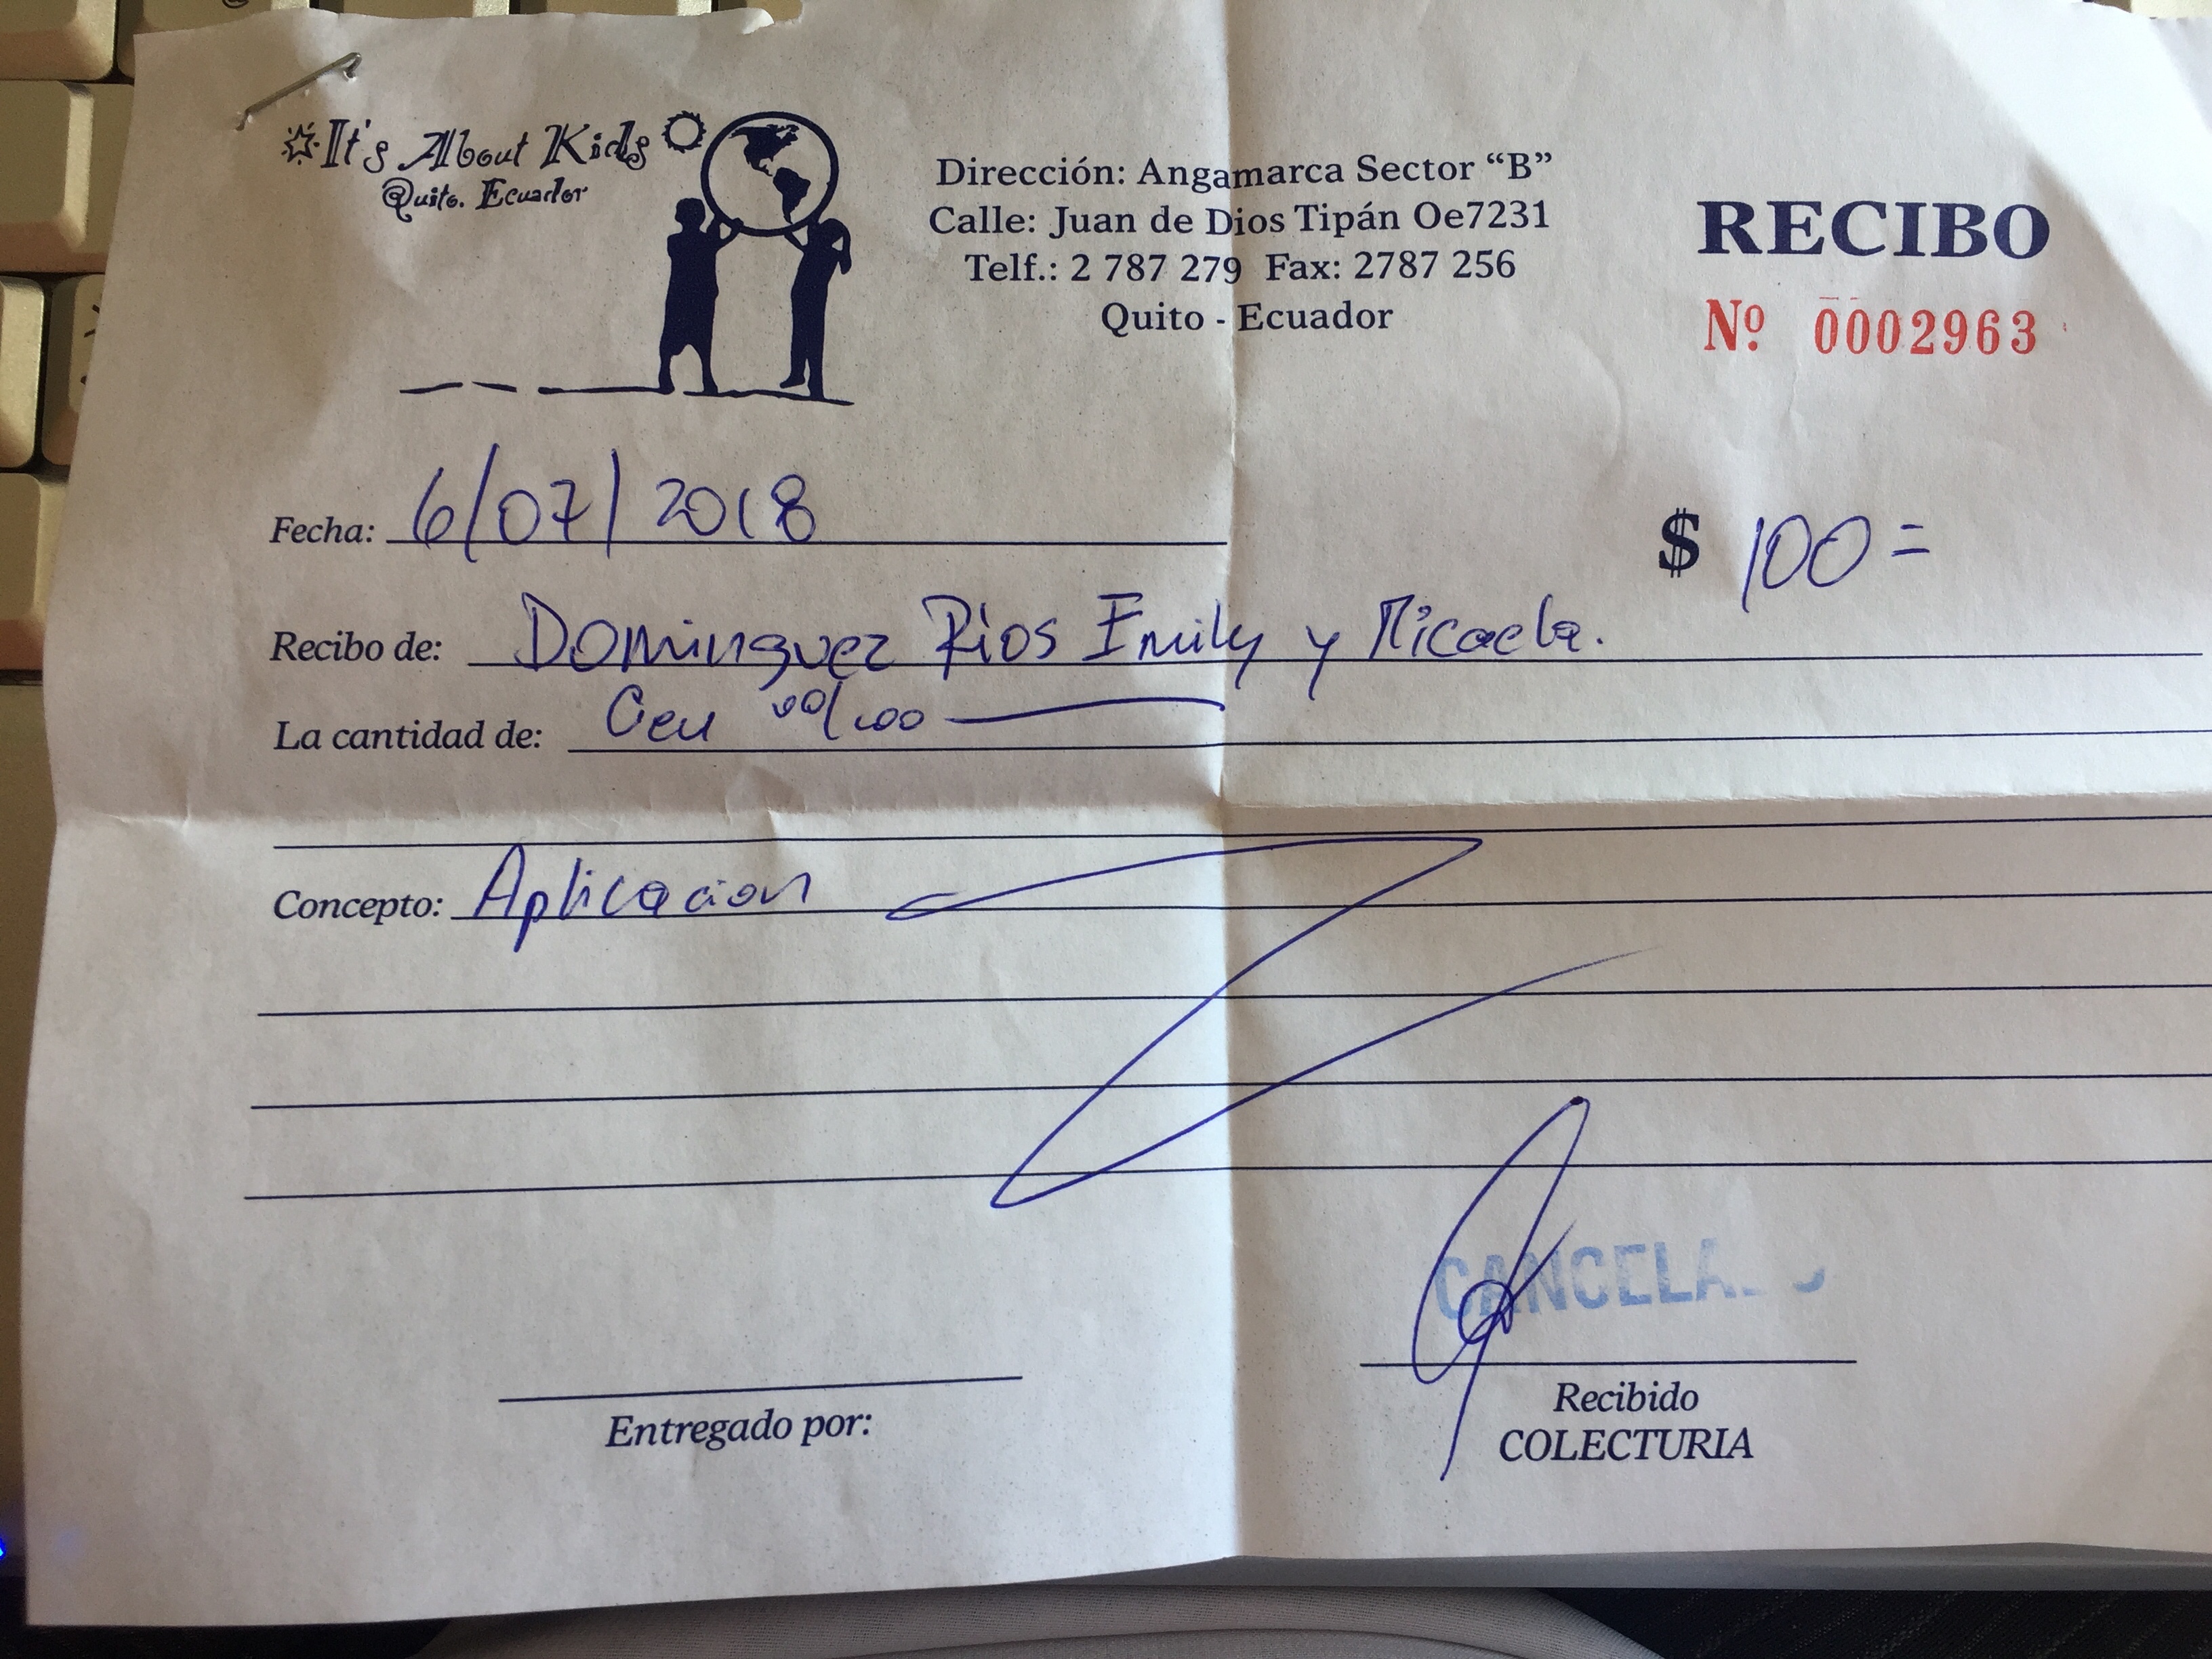 It's About Kids
Quito. Ecuador
Dirección: Angamarca Sector “B”
Calle: Juan de Dios Tipán Oe7231
Telf.: 2 787 279 Fax: 2787 256
Quito - Ecuador
RECIBO
Nº 0002963
Fecha: 6/07/2018
$ 100 =
Recibo de: Dominguez Rios Emily y Micaela.
La cantidad de: Cien 00/100
Concepto: Aplicacion
CANCELA
Entregado por:
Recibido
COLECTURIA